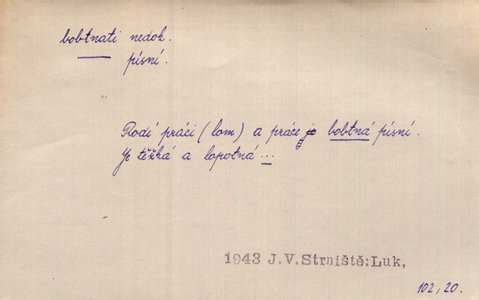 bobtnati nedok.
písní.
Rodí práci (lom) a práce je bobtná písní.
Je těžká a lopotná ...
1943 J.V.Strniště:Luk,
102, 20.